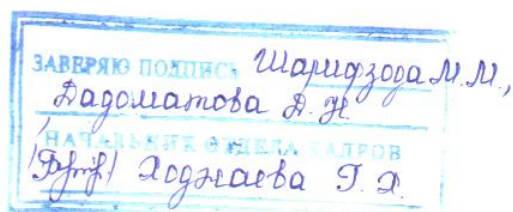 ЗАВЕРЯЮ ПОДПИСЬ Шарифзода М.М.,
Дадоматова Д. Н.
НАЧАЛЬНИК ОТДЕЛА КАДРОВ
Ходжаева Г. Х.